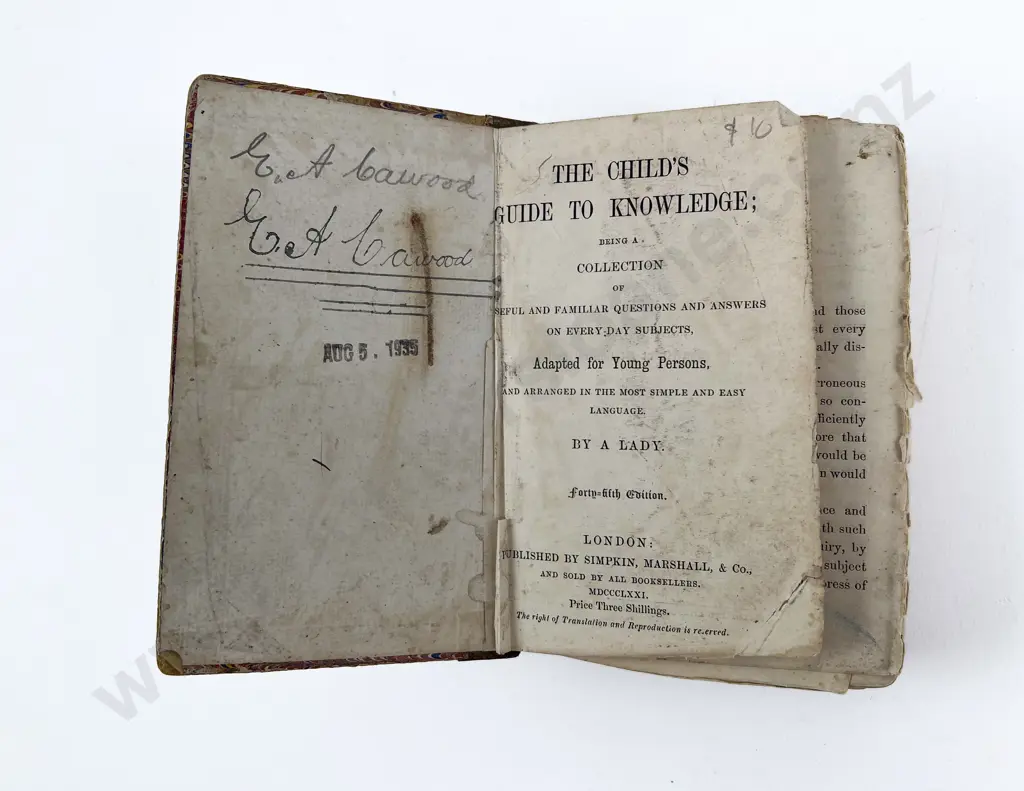 E. A Cawood
E. A Cawood
AUG 5. 1935
$10
THE CHILD'S
GUIDE TO KNOWLEDGE;
BEING A
COLLECTION
OF
SEFUL AND FAMILIAR QUESTIONS AND ANSWERS
ON EVERY-DAY SUBJECTS,
Adapted for Young Persons,
AND ARRANGED IN THE MOST SIMPLE AND EASY
LANGUAGE.
BY A LADY.
Forty-fifth Edition.
LONDON:
PUBLISHED BY SIMPKIN, MARSHALL, & Co.,
AND SOLD BY ALL BOOKSELLERS.
MDCCCLXXI.
Price Three Shillings.
The right of Translation and Reproduction is re.erved.
nd those
st every
ally dis-
rroneous
so con-
fficiently
ore that
would be
n would
ce and
th such
iry, by
subject
press of